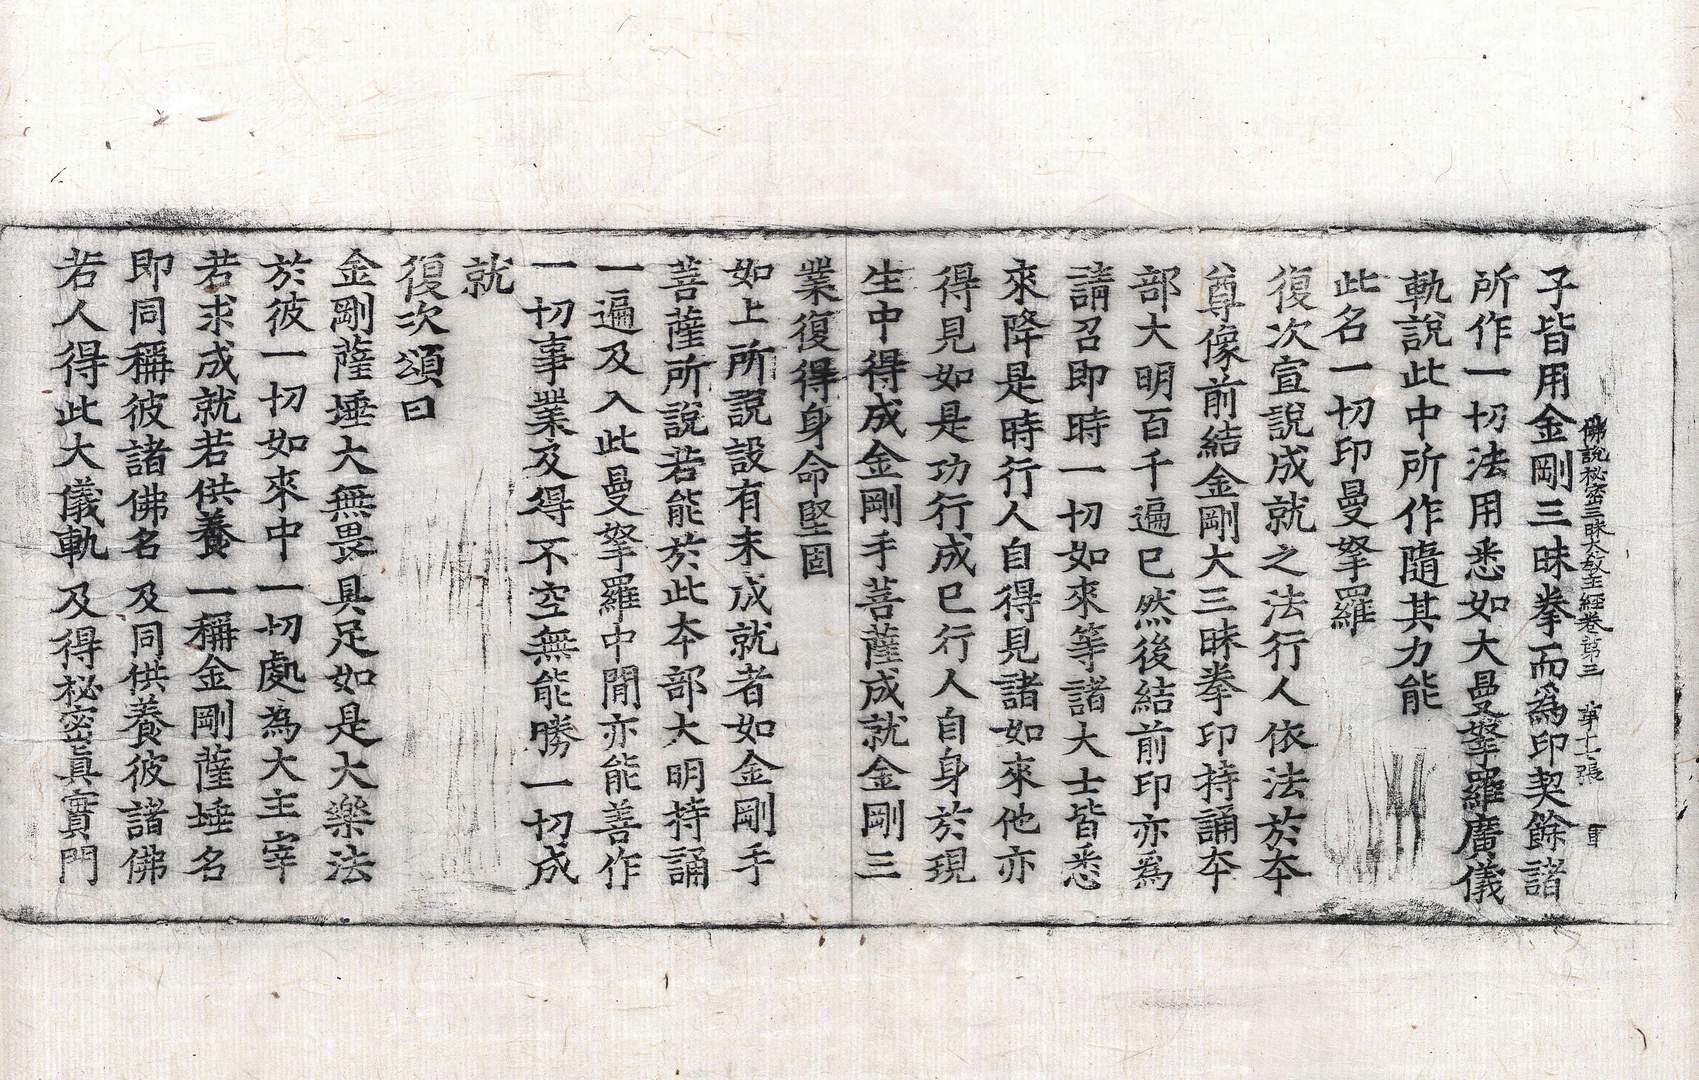 佛說秘密三昧大教王經卷第三 第十二張
子皆用金剛三昧拳而爲印契餘諸
所作一切法用悉如大曼拏羅廣儀
軌說此中所作隨其力能
此名一切印曼拏羅
復次宣說成就之法行人依法於夲
尊像前結金剛大三昧拳印持誦夲
部大明百千遍已然後結前印亦為
請召即時一切如來等諸大士皆悉
來降是時行人自得見諸如來他亦
得見如是功行成已行人自身於現
生中得成金剛手菩薩成就金剛三
業復得身命堅固
如上所說設有未成就者如金剛手
菩薩所說若能於此夲部大明持誦
一遍及入此曼拏羅中閒亦能善作
一切事業及得不空無能勝一切成
就
復次頌曰
金剛薩埵大無畏具足如是大樂法
於彼一切如來中一切處為大主宰
若求成就若供養一稱金剛薩埵名
即同稱彼諸佛名及同供養彼諸佛
若人得此大儀軌及得秘密真實門